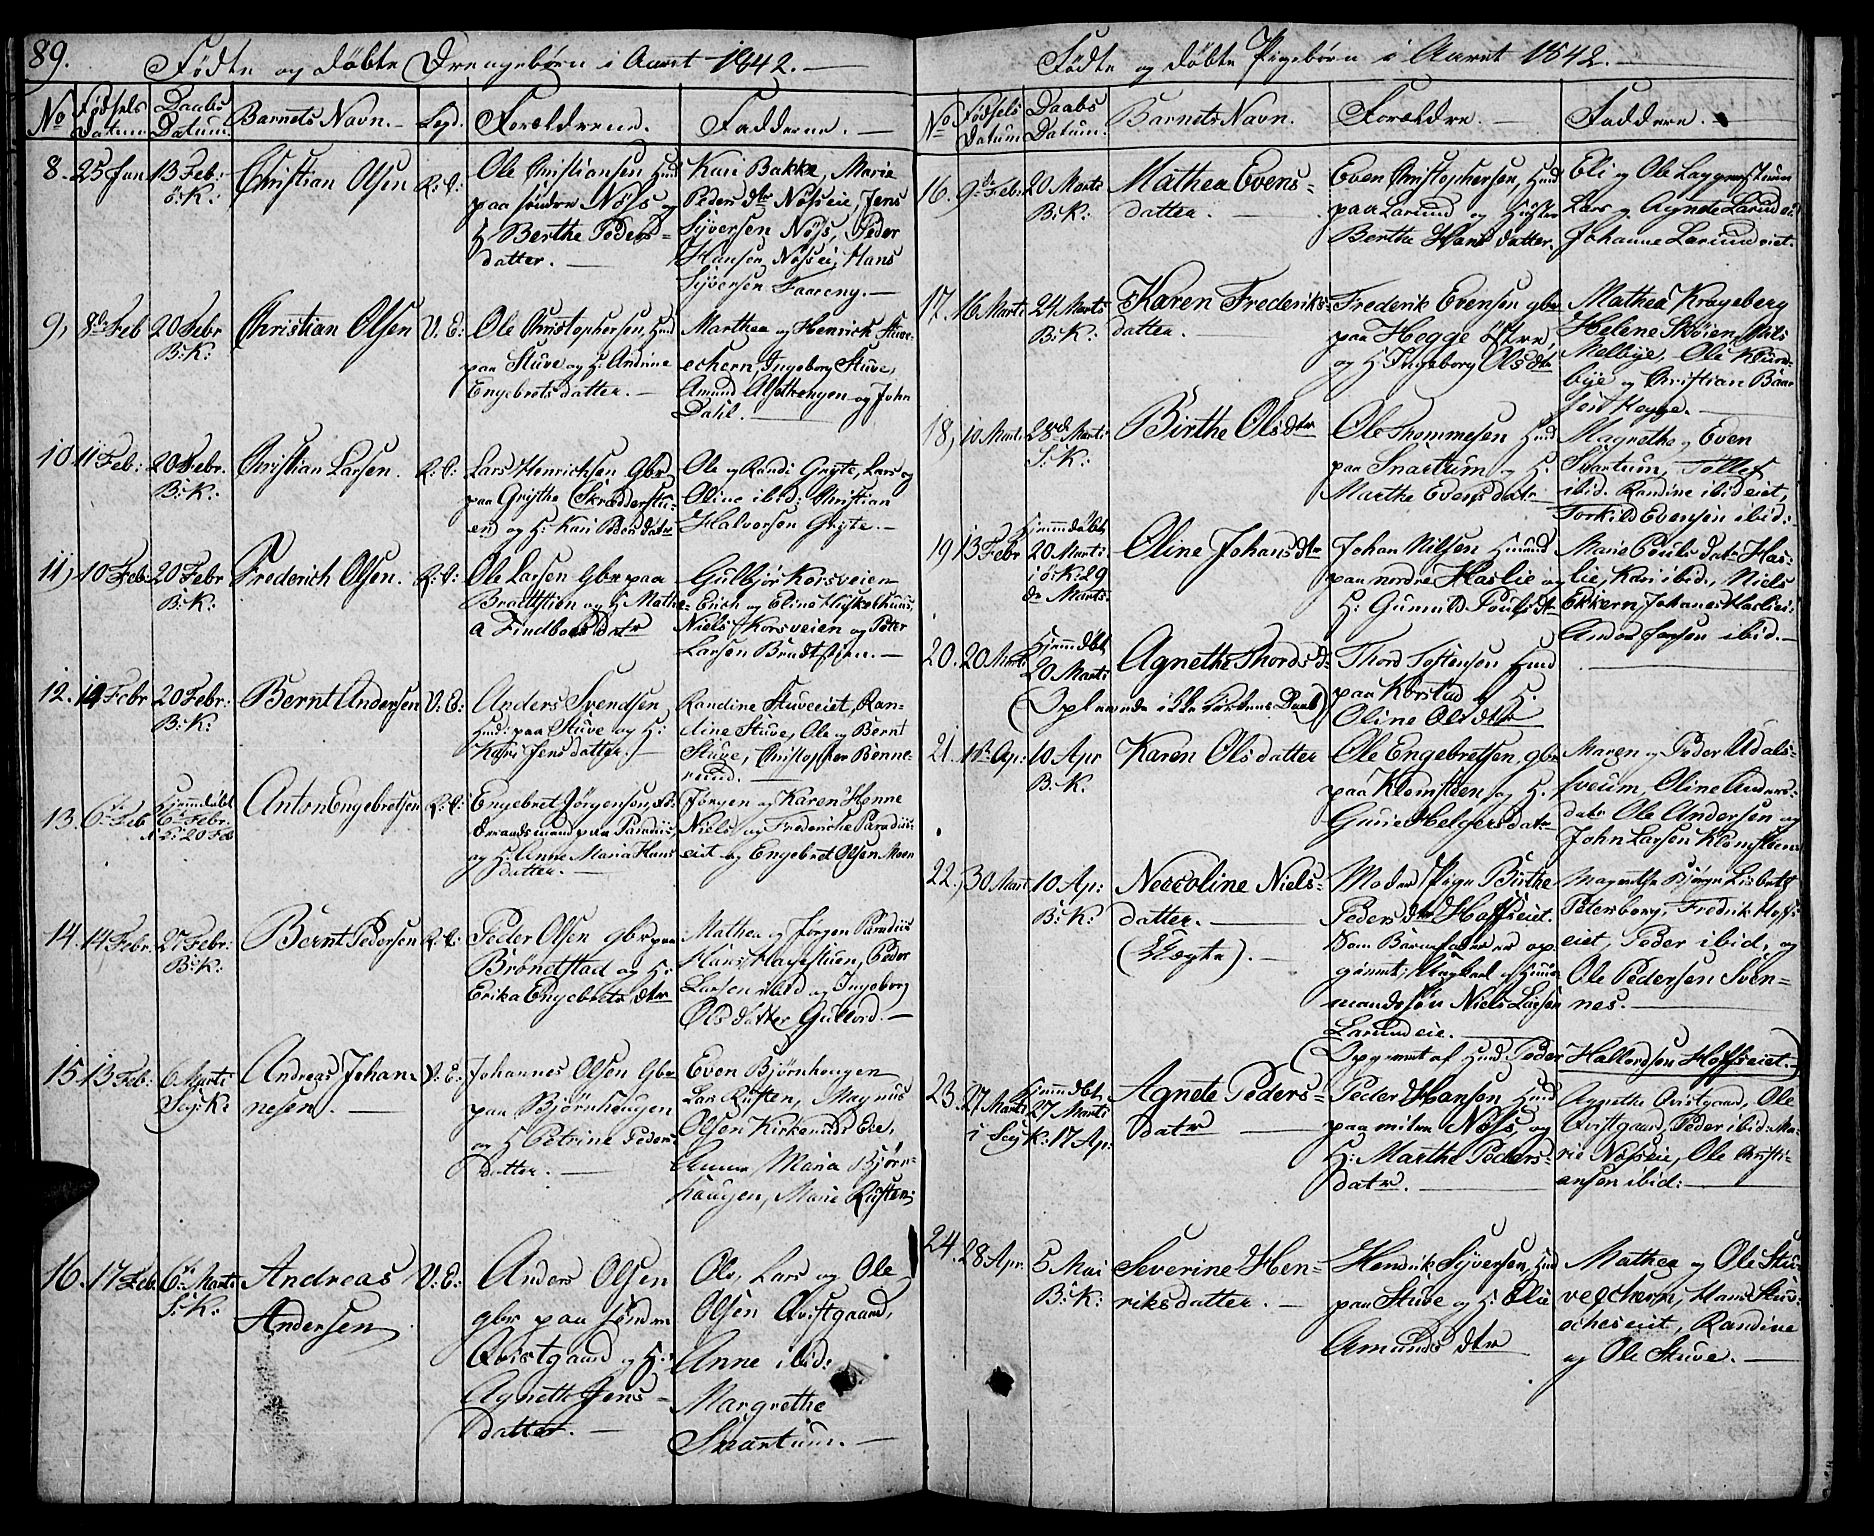 89.
Födte og döbte Drengebörn i Aaret 1842.
No Födsels Datum. Daabs Datum. Barnets Navn. Forældrene. Fadderne.
8. 25 Jan 13 Feb: Ö:K: Christian Olsen
Ole Christiansen Huusmd
paa söndre Nöss og
H Berthe Peders-
datter.
Kari Bakke, Marie
Peders dtr Nösseie, Jens
Syversen Nöss, Peder
Hansen Nössei, Hans
Syversen Faareng.
9, 8de Feb 20 Febr B:K: Christian Olsen V:E:
Ole Christophersen, Huusmd
paa Stuve og H: Andrine
Engebrets datter.
Marthea og Henrick Stuve-
echern, Ingeborg Stuve,
Amund Alsethengen og John
Dahl.
10 11 Feb: 20 Febr. B:K: Christian Larsen
Lars Henrichsen Gbr
paa Grythe (Skrædderstu-
en) og H: Kari Peders datr
Ole og Randi Gryte, Lars og
Oline ibid. Christian
Halvorsen Gryte.
11) 10 Feb: 20 Febr B:K: Frederich Olsen.
Ole Larsen Gbr paa
Bradtstien og H Mathe-
a Findboes Datr
Gulbjör Korsveien
Erich og Eline
Niels Korsveien og Peter
Larsen Bradtstien.
12. 14 Febr 20 Febr: B:K: Bernt Andersen V:E:
Anders Svendsen
Hud: paa Stuve og H:
Kari Jens datter.
Randine Stuveeiet, Ran-
dine Stuve, Ole og Bernt
Stuve, Christopher Bönne-
rud.
13. 6te Feb Hjemmedöbt 6 Febr. 20 Feb Anton Engebretsen
Engebret Jörgensen,
paa Paradiis
og H: Anne Maria Hans
datter.
Jörgen og Karen Hönne
Niels og Frederiche Paradiis-
eiet og Engebret Olsen Moen
14. 14 Febr. 27 Febr: B:K: Bernt Pedersen
Peder Olsen gbr paa
Bröndstad og H:
Erika Engebrets dtr
Mathea og Jörgen Paradiis
Hans Hagestuen, Peder
Larsen ibid og Ingeborg
Ols datter Gullord.
15 13 Feb: 6 Marts Seg: K: Andreas Johan-
nesen. V:E:
Johannes Olsen Gbr
paa Björnhaugen
og H Petrine Peders-
datter.
Even Björnhaugen
Lars Rusten, Magnus
Olsen Kirkerud Eie,
Anne Maria Björn-
haugen, Marie Rusten.
16. 17 Feb. 6te Marts S:K: Andreas
Andersen V:E:
Anders Olsen
gbr paa söndre
Qvistgaard og H:
Agnethe Jens
datter.
Ole, Lars og Ole
Olsen Qvistgaard,
Anne ibid:
Margrethe
Snartum.
Födte og döbte Pigebörn i Aaret 1842.
No Födsels Datum Daabs Datum. Barnets Navn. Forældre. Faddere.
16. 9de Febr 20 Marts B:K: Mathea Evens-
datter.
Even Christophersen, Huusmd
paa Larund og Hustru
Berthe Hans datter.
Eli og Ole
Lars og Agnete Larundei
Johanne Larundeiet.
17. 16 Marts 24 Marts B:K: Karen Frederiks-
datter.
Frederik Evensen gbr
paa Hegge östre,
og H: Ingeborg Ols dtr
Mathea Krageberg
Helene Sköien, Nils
Melbye, Ole
bye og Christian
Hegge.
18, 10 Marts 28de Marts S:K: Birthe Ols dtr
Ole Thommesen Huusmd
paa Snartum og H.
Marthe Evens datr
Magrethe og Even
Snartum, Tollef
ibid. Randine ibid eiet,
Torkild Evensen ibid:
19 13 Febr Hjemmedöbt 20 Marts i Ö:K: 29 de Marts. Oline Johans dtr
Johan Nilsen Huusmd
paa nordre Haslie og
H: Gunnild Pouls dtr
Marie Pouls datr Has-
lie, Kari ibid., Niels
Ekkern, Johanes Haslie,
Anders Jansen ibid.
20. 20 Marts Hjemmedöbt 20 Marts Agnethe Thords d.
(Oplevede ikke Kirkens Daab)
Thord Tostensen Huusmd
paa Korstad og H.
Oline Ols dtr
21. 1ste Apr: 10 Apr B:K: Karen Ols datter
Ole Engebretsen, gbr
paa Klomsteen og H:
Gurie Helgers datr
Maren og Peder Udals-
sveum, Oline Anders-
datr Ole Andersen og
John Larsen Klomsteen
22. 30 Marts 10 Ap: B:K: Nicoline Niels-
datter.
(Uægte).
Moder Pige Birthe
Peders dtr Hoffseiet.
Som Barnefader er op-
givet; Ungkarl og Huus-
mandssön Niels Larsen
Larundeie.
Magrethe Lisbeth
Petersborg, Fredrik Hoffs-
eiet, Peder ibid, og
Ole Pedersen Sven-
nes.
(Opgivet af Huusmd Peder Hallordsen Hoffseiet.)
23. 27 Marts Hjemmdöbt, 27 Marts i Seg K: 17 Ap: Agnete Peders-
datr
Peder Hansen, Huusmd
paa mitre Nöss, og
H: Marthe Peders-
datr.
Agnethe Qvistgaard, Ole
Qvistgaard, Peder ibid: Ma-
rie Nösseie, Ole Christi-
ansen ibid:
24. 28 Apr. 5 Mai B:K: Severine Hen-
riksdatter.
Hendrik Syversen, Huusmd
paa Stuve og H: Elie
Amunds dtr
Mathea og Ole Stu-
veechern, Hans Stuv-
echeseiet, Randine
og Ole Stuve.